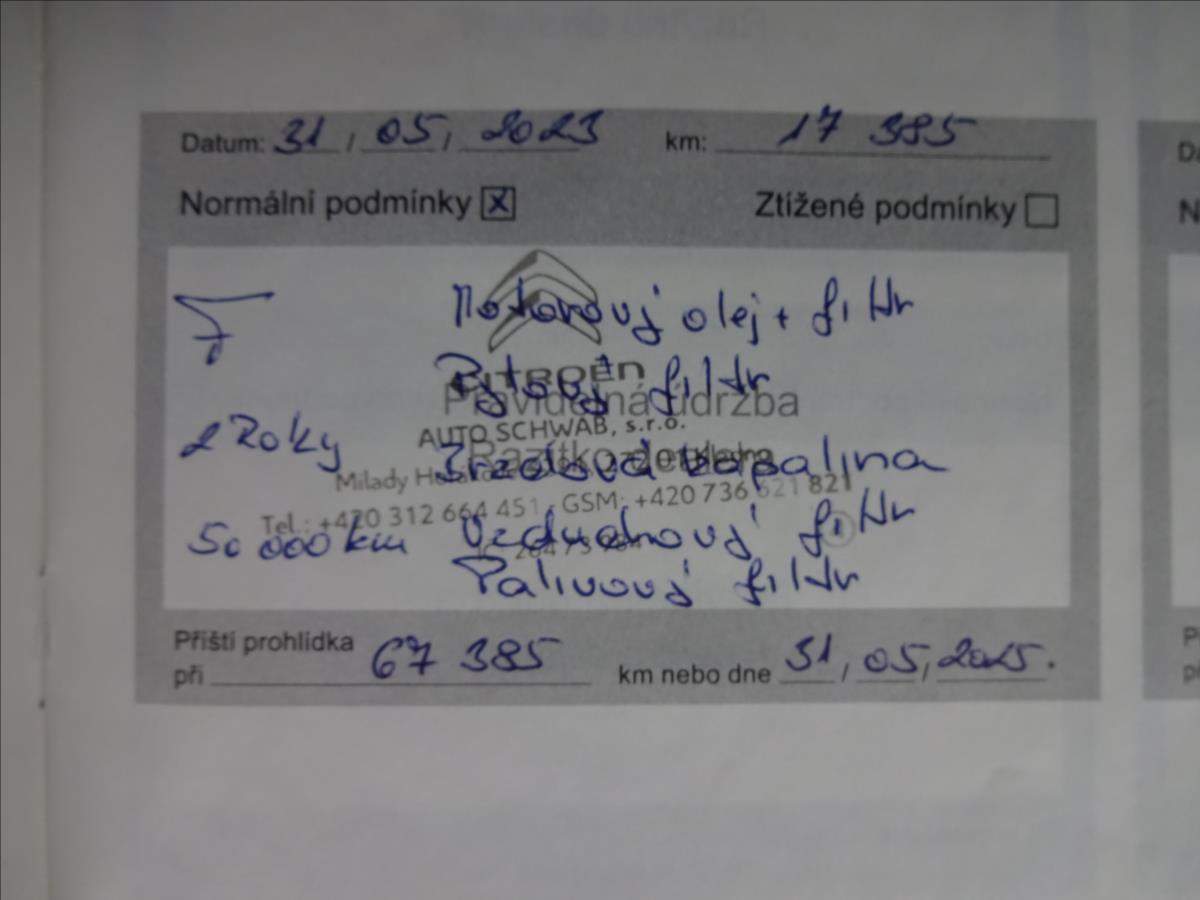 Datum: 31 / 05 / 2023 km: 17 385
Normální podmínky X Ztížené podmínky
Motorový olej + filtr
CITROËN
Pylový filtr
Pravidelná údržba
AUTO SCHWAB, s.r.o.
2 Roky Brzdová kapalina
Razítko
Milady
Tel.: +420 312 664 451, GSM: +420 736 621 821
50 000 km Vzduchový filtr
Palivový filtr
Příští prohlídka
při 67 385 km nebo dne 31 / 05 / 2025.